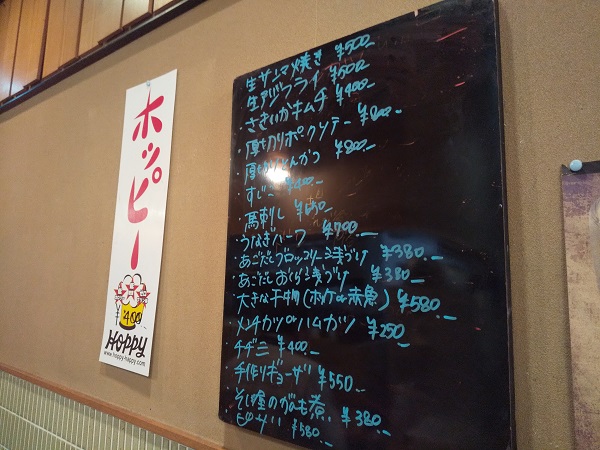 ホッピー
¥400
HOPPY
www.hoppy-happy.com
生サンマ焼き ¥500-
生アジフライ ¥500-
さきいかキムチ ¥400-
・厚切りポークソテー ¥800-
・厚切りとんかつ ¥800-
すじこ ¥400-
・馬刺し
・うなぎハーフ ¥700.-
・あごだしブロッコリー浅づけ ¥380.-
・あごだしおくら浅づけ ¥380.-
大きな干物(ホッケor赤魚) ¥580.-
・メンチカツorハムカツ ¥250-
チヂミ ¥400.-
手作りギョーザ ¥550.-
そば屋のがんも煮 ¥380.-
ピザ ¥580.-